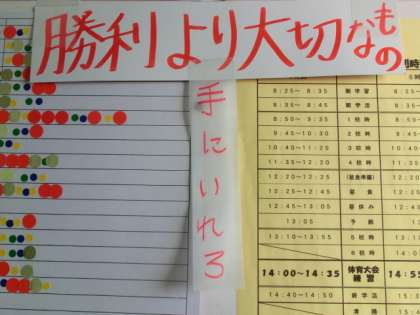 勝利より大切なもの
手にいれろ
8:25～ 8:35 朝学習
8:35～ 8:40 朝学活
8:50～ 9:40 1校時
9:45～10:30 2校時
10:40～11:30 3校時
11:35～12:20 4校時
12:20～12:25 (昼食準備)
12:25～12:45 昼食
12:45～13:05 昼休み
13:05 予鈴
13:10～13:55 5校時
6校時
14:00～14:35 体育大会練習
14:55
14:40～14:50 終学活
清掃